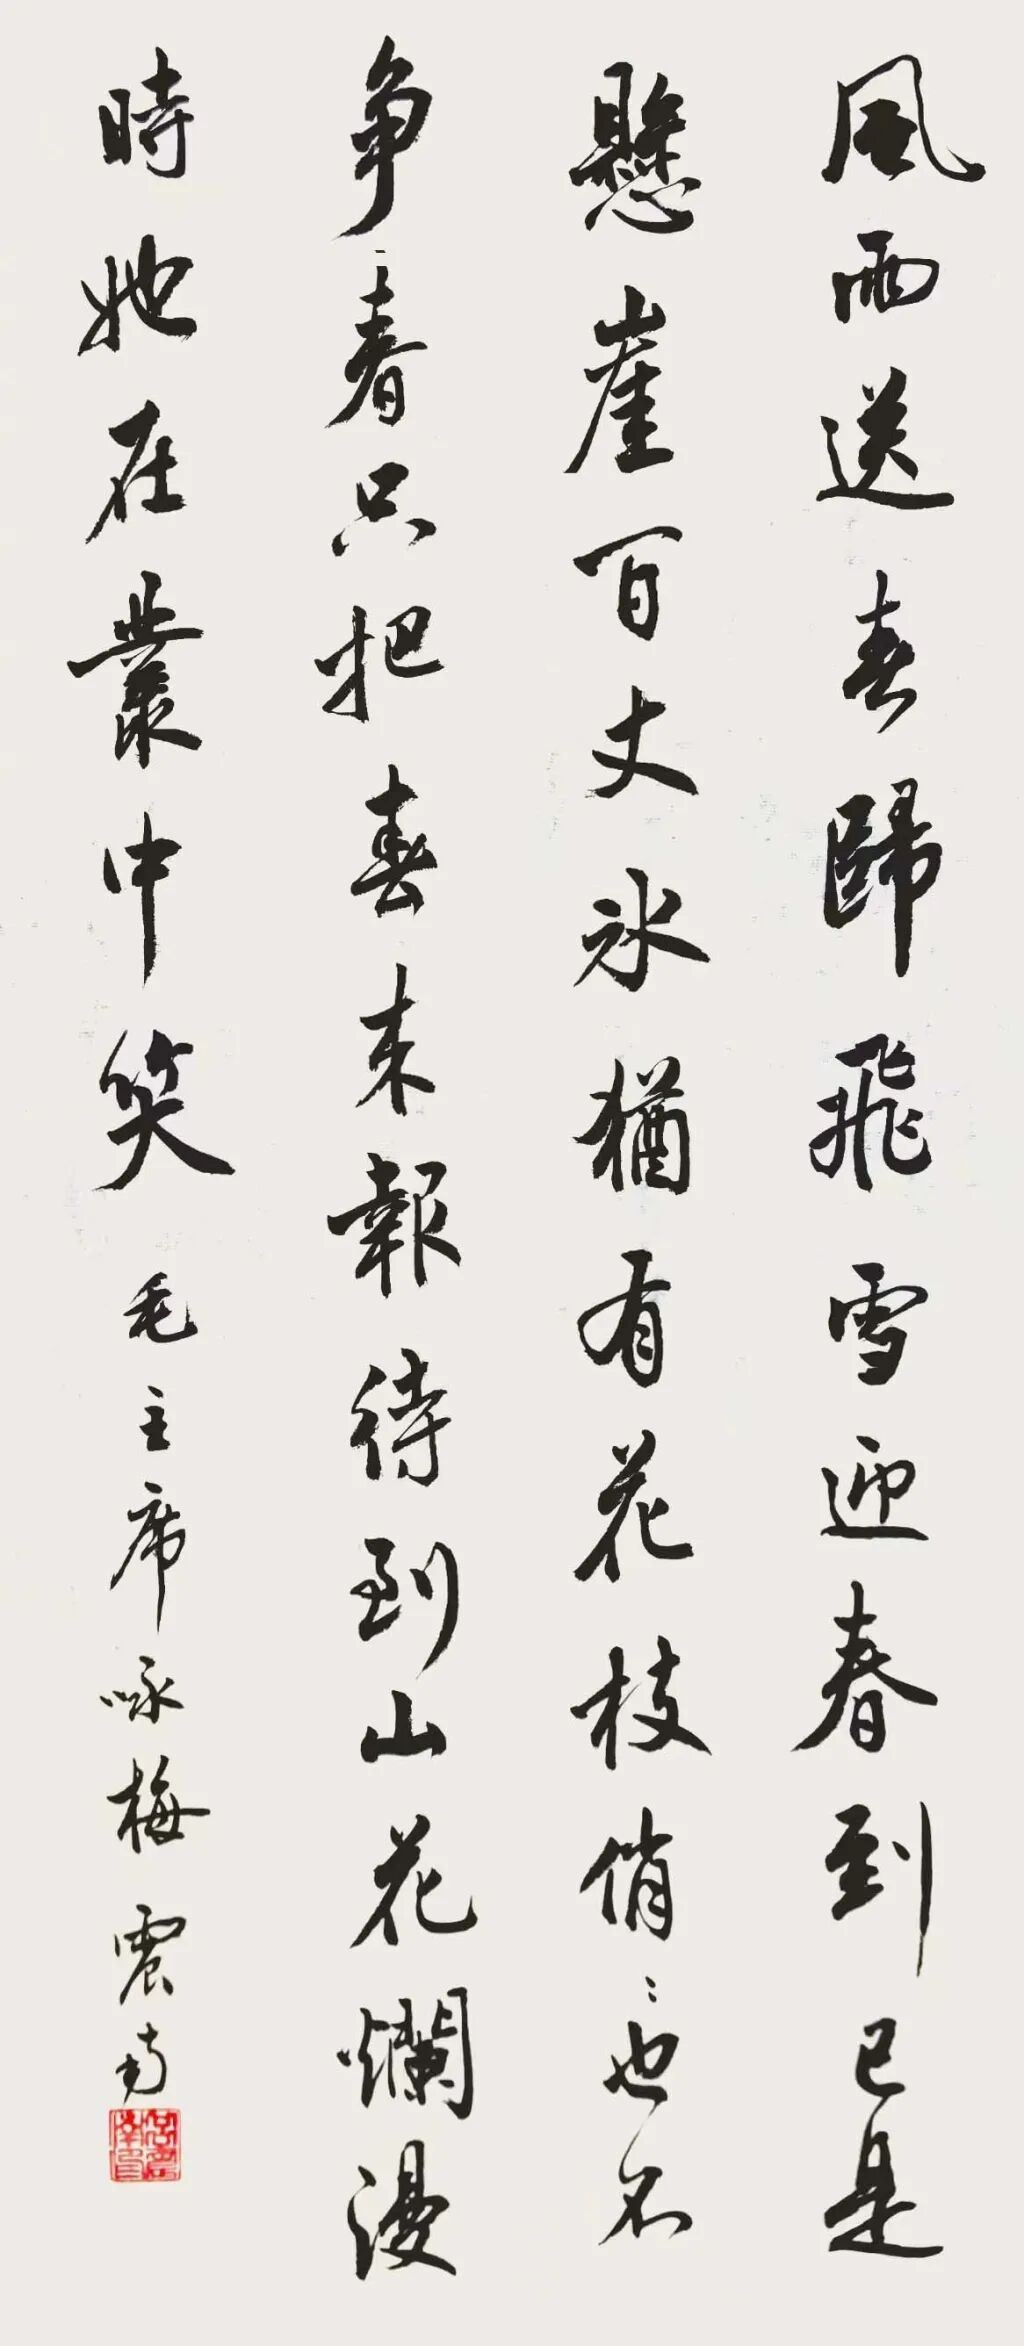 風雨送春歸飛雪迎春到已是
懸崖百丈冰猶有花枝俏〻也不
争春只把春来報待到山花爛漫
時她在叢中笑 毛主席咏梅 震南